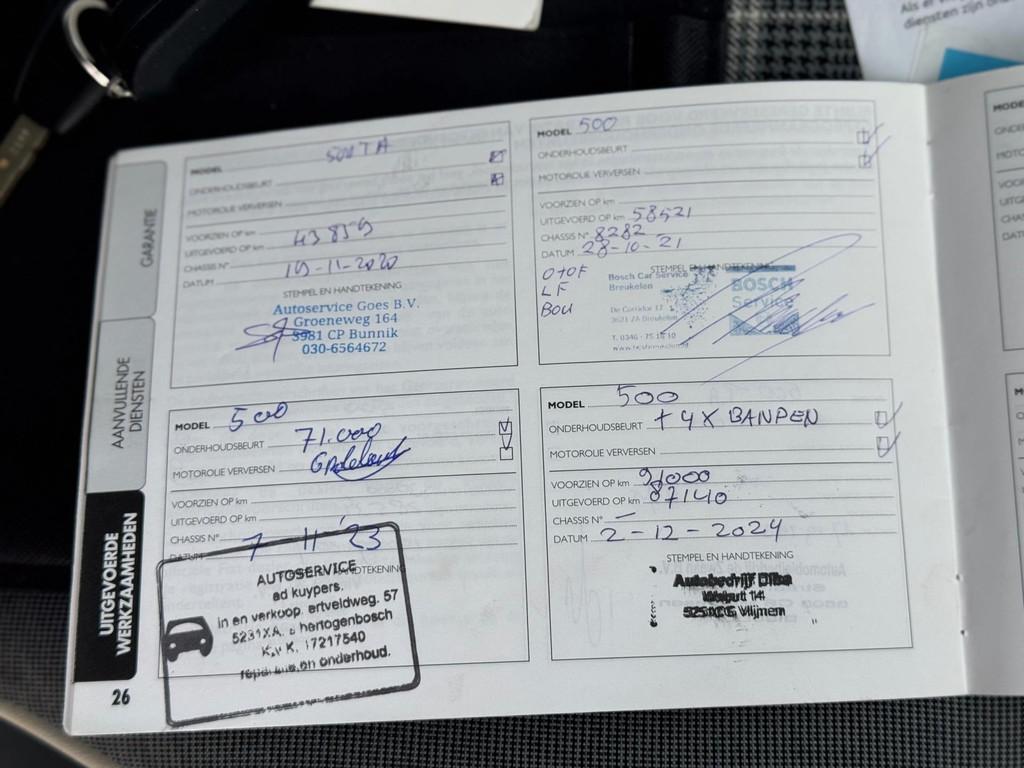 Als er
diensten zijn
GARANTIE
AANVULLENDE
DIENSTEN
UITGEVOERDE
WERKZAAMHEDEN
26
MODEL 500TA
ONDERHOUDSBEURT
MOTOROLIE VERVERSEN
VOORZIEN OP km
UITGEVOERD OP km 43859
CHASSIS N°
DATUM 19-11-2020
STEMPEL EN HANDTEKENING
Autoservice Goes B.V.
Groeneweg 164
3981 CP Bunnik
030-6564672
MODEL 500
ONDERHOUDSBEURT
MOTOROLIE VERVERSEN
VOORZIEN OP km
UITGEVOERD OP km 58521
CHASSIS N° 8282
DATUM 28-10-21
STEMPEL EN HANDTEKENING
O+OF
LF
BOU
Bosch Car Service
Breukelen
De Corridor 17
3621 ZA Breukelen
T. 0346 - 75 10 10
BOSCH
Service
MODEL 500
ONDERHOUDSBEURT 71.000
MOTOROLIE VERVERSEN
VOORZIEN OP km
UITGEVOERD OP km
CHASSIS N°
DATUM 7 11 '23
HANDTEKENING
AUTOSERVICE
ad kuypers.
in en verkoop. ertveldweg. 57
5231XA. s hertogenbosch
K.v.K. 17217540
reparatie en onderhoud.
MODEL 500
ONDERHOUDSBEURT + 4X BANDEN
MOTOROLIE VERVERSEN
VOORZIEN OP km 91000
UITGEVOERD OP km 87140
CHASSIS N° —
DATUM 2-12-2024
STEMPEL EN HANDTEKENING
Autobedrijf Diba
Vlijmen